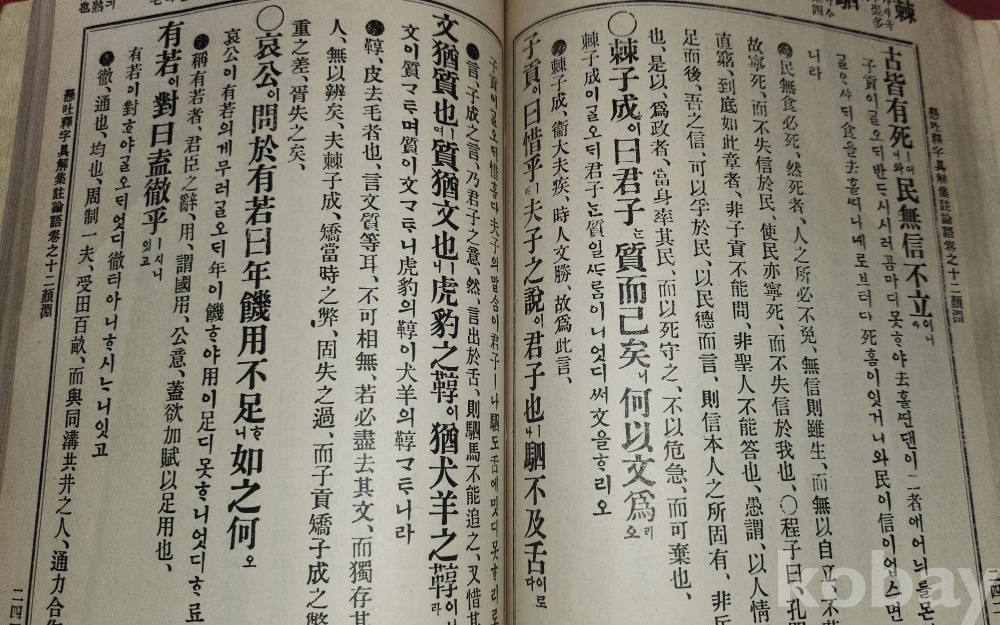 懸吐釋字具解集註論語卷之十二 顔淵
古皆有死ㅣ어니와民無信不立이니라
니라
民無食必死、然死者、人之所必不免、無信則雖生、而無以自立、不
故寧死、而不失信於民、使民亦寧死、而不失信於我也、○程子曰、孔門
直窮、到底如此章者、非子貢不能問、非聖人不能答也、愚謂、以人情
足而後、吾之信、可以孚於民、以民德而言、則信本人之所固有、非兵
也、是以、爲政者、當身率其民、而以死守之、不以危急、而可棄也、
○棘子成이曰君子ᄂᆞᆫ質而已矣니何以文爲리오
棘子成이ᄀᆞᆯ오ᄃᆡ君子ᄂᆞᆫ質일ᄯᆞᄅᆞᆷ이니엇디ᄡᅥ文을ᄒᆞ리오
棘子成、衞大夫、疾、時人文勝、故爲此言、
子貢이曰惜乎ㅣ夫子之說이君子也ㅣ나駟不及舌이로다
子貢이ᄀᆞᆯ오ᄃᆡ惜홉다夫子의말ᄉᆞᆷ이君子ㅣ나駟도舌에밋디못ᄒᆞ리로다
言、子成之言、乃君子之意、然、言出於舌、則駟馬不能追之、又惜其
文猶質也ㅣ며質猶文也ㅣ니虎豹之鞹이猶犬羊之鞹이니라
文이質ᄀᆞᄐᆞ며質이文ᄀᆞᄐᆞ니虎豹의鞹이犬羊의鞹ᄀᆞᄐᆞ니라
鞹、皮去毛者也、言文質等耳、不可相無、若必盡去其文、而獨存其
人、無以辨矣、夫棘子成、矯當時之弊、固失之過、而子貢矯子成之弊
重之差、胥失之矣、
○哀公이問於有若曰年饑用不足ᄒᆞ니如之何오
哀公이有若의게무러ᄀᆞᆯ오ᄃᆡ年이饑ᄒᆞ야用이足디못ᄒᆞ니엇디ᄒᆞ료
稱有若者、君臣之辭、用、謂國用、公意、蓋欲加賦以足用也、
有若이對曰盍徹乎ㅣ시니잇고
有若이對ᄒᆞ야ᄀᆞᆯ오ᄃᆡ엇디徹티아니ᄒᆞ시ᄂᆞ니잇고
徹、通也、均也、周制一夫、受田百畝、而與同溝共井之人、通力合作
懸吐釋字具解集註論語卷之十二 顔淵
kobay